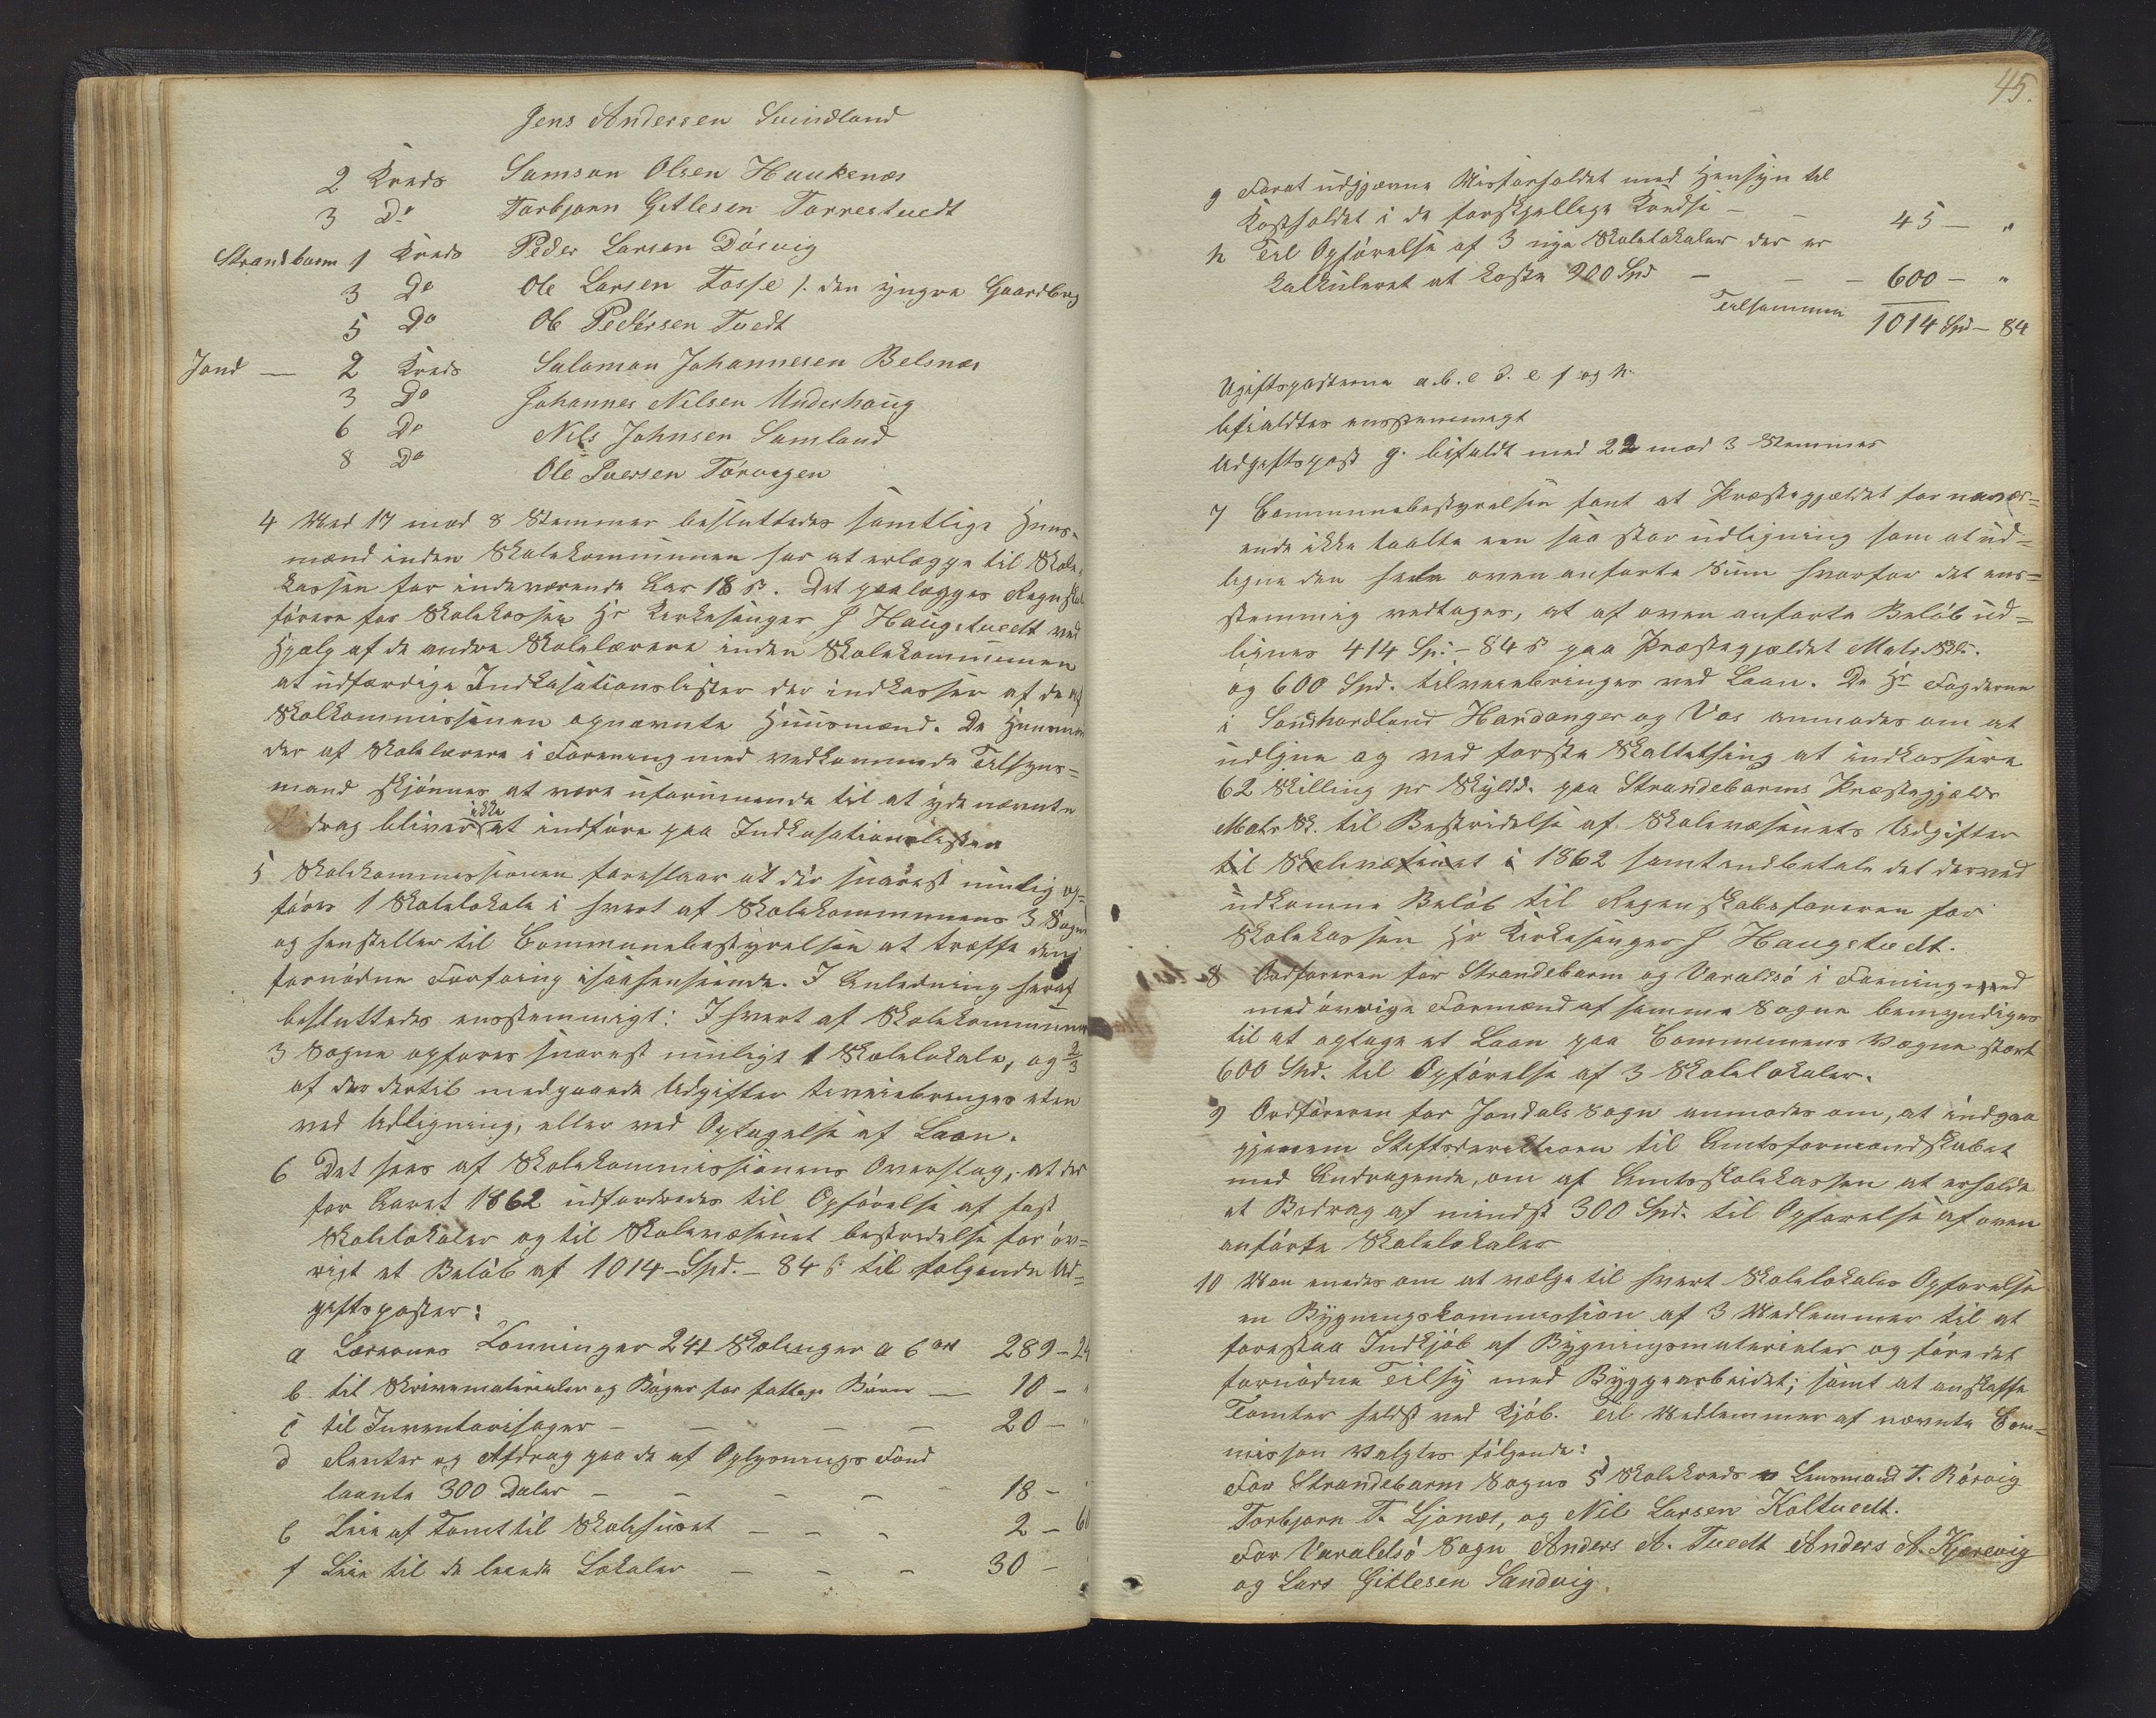 Jens Andersen Svindland
2 Kreds Samson Olsen Haukenæs
3 Do Torbjørn Gitlesen Torrestvedt
Strandbarm 1 Kreds Peder Larsen Døsvig
3 Do Ole Larsen Fosse /. den yngre Gaardbrg
5 Do Ole Pedersen Tvedt
Jond — 2 Kreds Salomon Johannesen Belsnæs
3 Do Johannes Nilsen Underhaug
6 Do Nils Johnsen Samland
8 Do Ole Iversen Tørvegen
4 Med 17 mod 8 Stemmer besluttedes samtlige Huus-
mænd inden Skolekommunen har at erlægge til Skole-
kassen for indeværende Aar 18 ß. Det paalægges Regnskabs
førere for Skolekassen Hr Kirkesanger J Haugstvedt ved
Hjælp af de andre Skolelærere inden Skolekommunen
at udfærdige Indkasationslister der indkasser af de af
Skolkommissionen opnævnte Huusmænd. De Huusmænd
der af Skolelærere i Forening med vedkommende Tilsyns-
mand skjønnes at være uformuende til at yde nævnte
Bidrag bliver ikke at indføre paa Indkasationslisten
5 Skolekommissionen foreslaar at der snarest mulig op-
føres 1 Skolelokale i hvert af Skolekommunens 3 Sogne
og henstiller til Communebestyrelsen at træffe den
fornødne Forføining isaahenseende. I Anledning heraf
besluttedes enstemmigt: I hvert af Skolekommunens
3 Sogne opføres snarest muligt 1 Skolelokale, og 2/3
af der dertil medgaaende Udgifter tilveiebringes eten
ved Udligning, eller ved Optagelse af Laan.
6 Det sees af Skolekommissionens Overslag, at der
for Aaret 1862 udfordredes til Opførelse af fast
Skolelokaler og til Skolevæsenet bestridelse for øv-
rigt et Beløb af 1014 - Spd. - 84 ß til følgende Ud-
giftsposter:
a Lærernes Lønninger 241 Skoleuger a 6 ort 289 - 24
b. til Skrivematerialer og Bøger for fattige Børn — 10 - "
c til Inventarisager - - - - 20 - "
d Renter og Afdrag paa de af Oplysnings Fond
laante 300 Daler - - - - - 18 -
e Leie af Tomt til Skolehuset - - - 2 - 60
f Leie til de leiede Lokaler - - - 30 -
45.
g Forat udjævne Misforholdet med Hensyn til
Kostholdet i de forskjellige Kredse - - 45 — "
h Til Opførelse af 3 nye Skolelokaler der er
kalkuleret at koste 900 Spd - - - 600 - "
Tilsammen 1014 Spd - 84
Ugiftsposterne a. b. c d. e f og h.
bifaldtes enstemmigt
Udgiftspost g. bifaldt med 22 mod 3 Stemmer
7 Communebestyrelsen fant at Præstegjældet for nuvær-
ende ikke taalte een saa stor udligning som at ud-
ligne den hele ovenanførte Sum hvorfor det ens-
stemmig vedtoges, at af ovenanførte Beløb ud-
lignes 414 Sp. - 84 ß paa Præstegjældet Matr. Skl.
og 600 Spd. tilveiebringes ved Laan. De Hr Fogderne
i Søndhordland Hardanger og Vos anmodes om at
udligne og ved første Skattething at indkassere
62 Skilling pr Skyldd. paa Strandebarms Præstegjælds
Matr Sk. til Bestridelse af Skolevæsenets Udgifter
til Skolevæsenet i 1862 samt indbetale det derved
udkomne Beløb til Regenskabsføreren for
Skolekassen Hr Kirkesanger J Haugstvedt.
8 Ordføreren for Strandebarm og Varaldsø i Foening med
med øvrige Formænd af samme Sogne bemyndiges
til at optage et Laan paa Commenens Vægne stort
600 Spd. til Opførelse af 3 Skolelokaler.
9 Ordføreren for Jondals Sogn anmodes om, at indgaa
gjenem Stiftsdirektionen til Amtsformandskabet
med Andragende, om af Amtsskolekassen at erholde
et Bidrag af mindst 300 Spd. til Opførelse af oven
anførte Skolelokaler
10 Man enedes om at vælge til hvert Skolelokales Opførelse
en Bygningskommission af 3 Medlemmer til at
forestaa Indkjøb af Bygningsmaterialer og føre det
fornødne Tilsy med Byggearbeidet; samt at anskaffe
Tomter heldst ved Kjøb. Til Medlemmer af nævnte Com-
mission valgtes følgende:
For Strandebarm Sogns 5 Skolekreds Lensmand T. Rørvig
Torbjørn T. Ljonæs, og Nils Larsen Koltvedt.
For Varaldsø Sogn Anders A. Tvedt Anders A. Kjærevig
og Lars Gitlesen Sandvig.